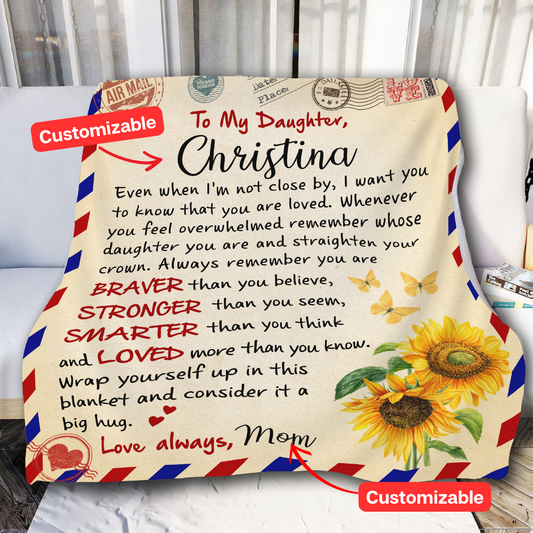 AIR MAIL
Date:
Place:
DALLAS
LOVE
Customizable
To My Daughter,
Christina
Even when I'm not close by, I want you
to know that you are loved. Whenever
you feel overwhelmed remember whose
daughter you are and straighten your
crown. Always remember you are
BRAVER than you believe,
STRONGER than you seem,
SMARTER than you think
and LOVED more than you know.
Wrap yourself up in this
blanket and consider it a
big hug.
Love always, Mom
Customizable